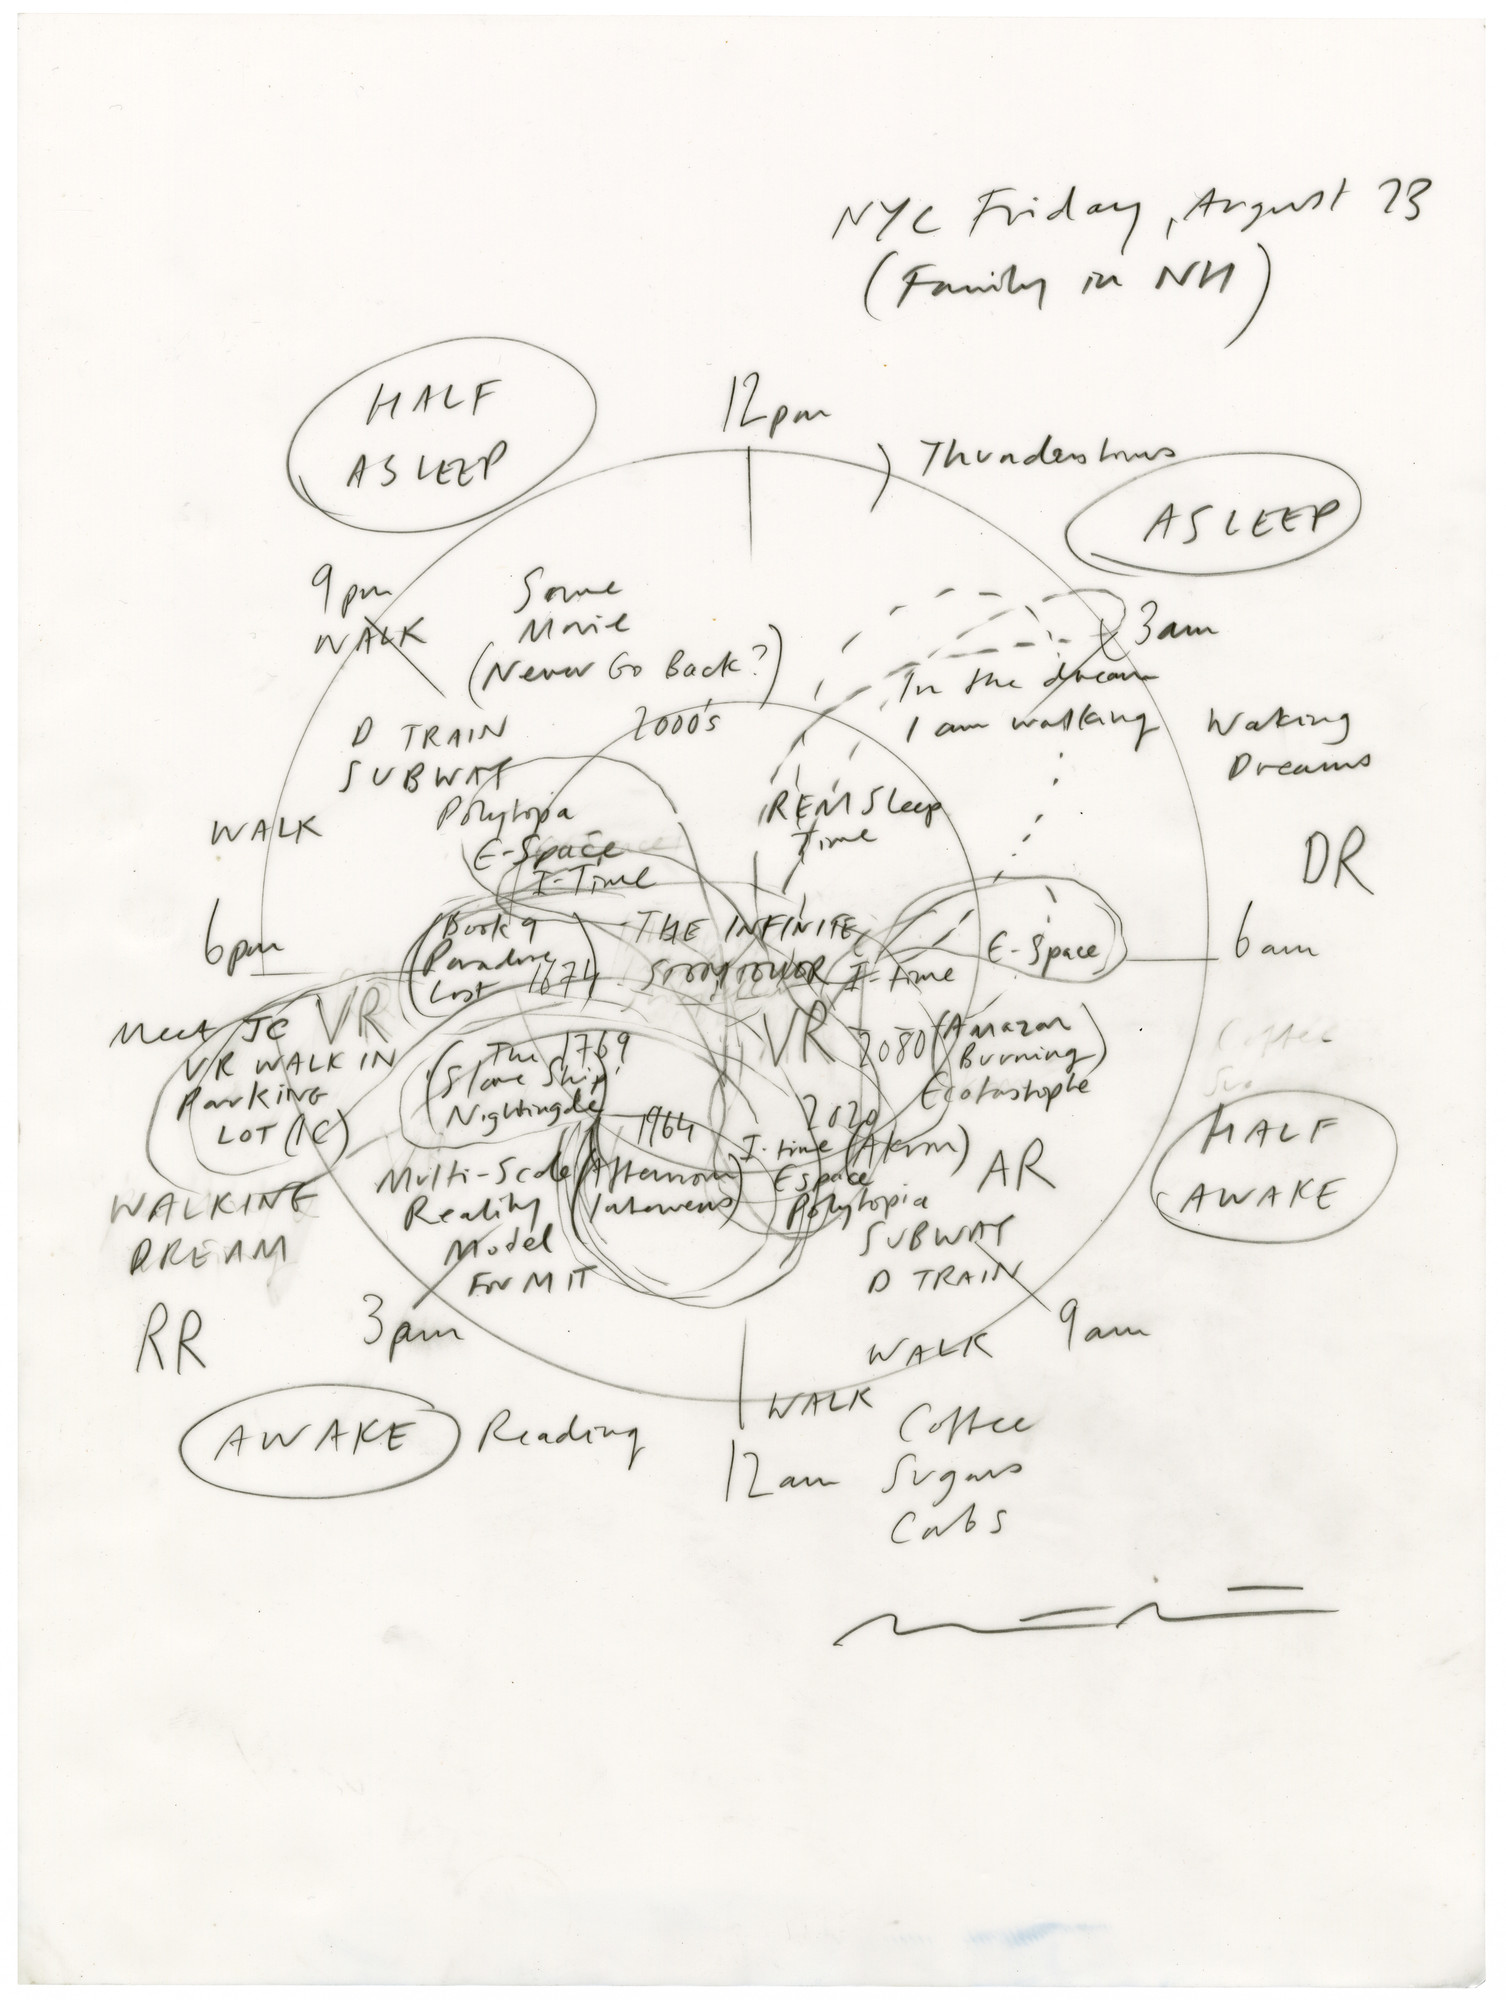 NYC Friday, August 23
(Family in NH)
HALF
ASLEEP
12pm
Thunderstorms
ASLEEP
9pm
WALK
Some
Movie
(Never Go Back?)
3am
In the dream
I am walking
Waking
Dreams
2000's
D TRAIN
SUBWAY
WALK
Polytopia
E-Space
I-Time
REM Sleep
Time
DR
6pm
Book 9
Paradise
Lost 1674
THE INFINITE
I-time
E-Space
6am
Meet JC
VR
VR WALK IN
Parking
LOT (NC)
The 1769
Slave Ship
Nightingale
VR
2080 (Amazon
Burning)
Ecotastophe
Coffee
HALF
AWAKE
1964
(Afternoon
Interviews)
2020
I-time (Akron)
Espace
Polytopia
AR
Multi-Scale
Reality
Model
For MIT
WALKING
DREAM
SUBWAY
D TRAIN
RR
3pm
9am
WALK
AWAKE
Reading
WALK
12am
Coffee
Sugars
Carbs